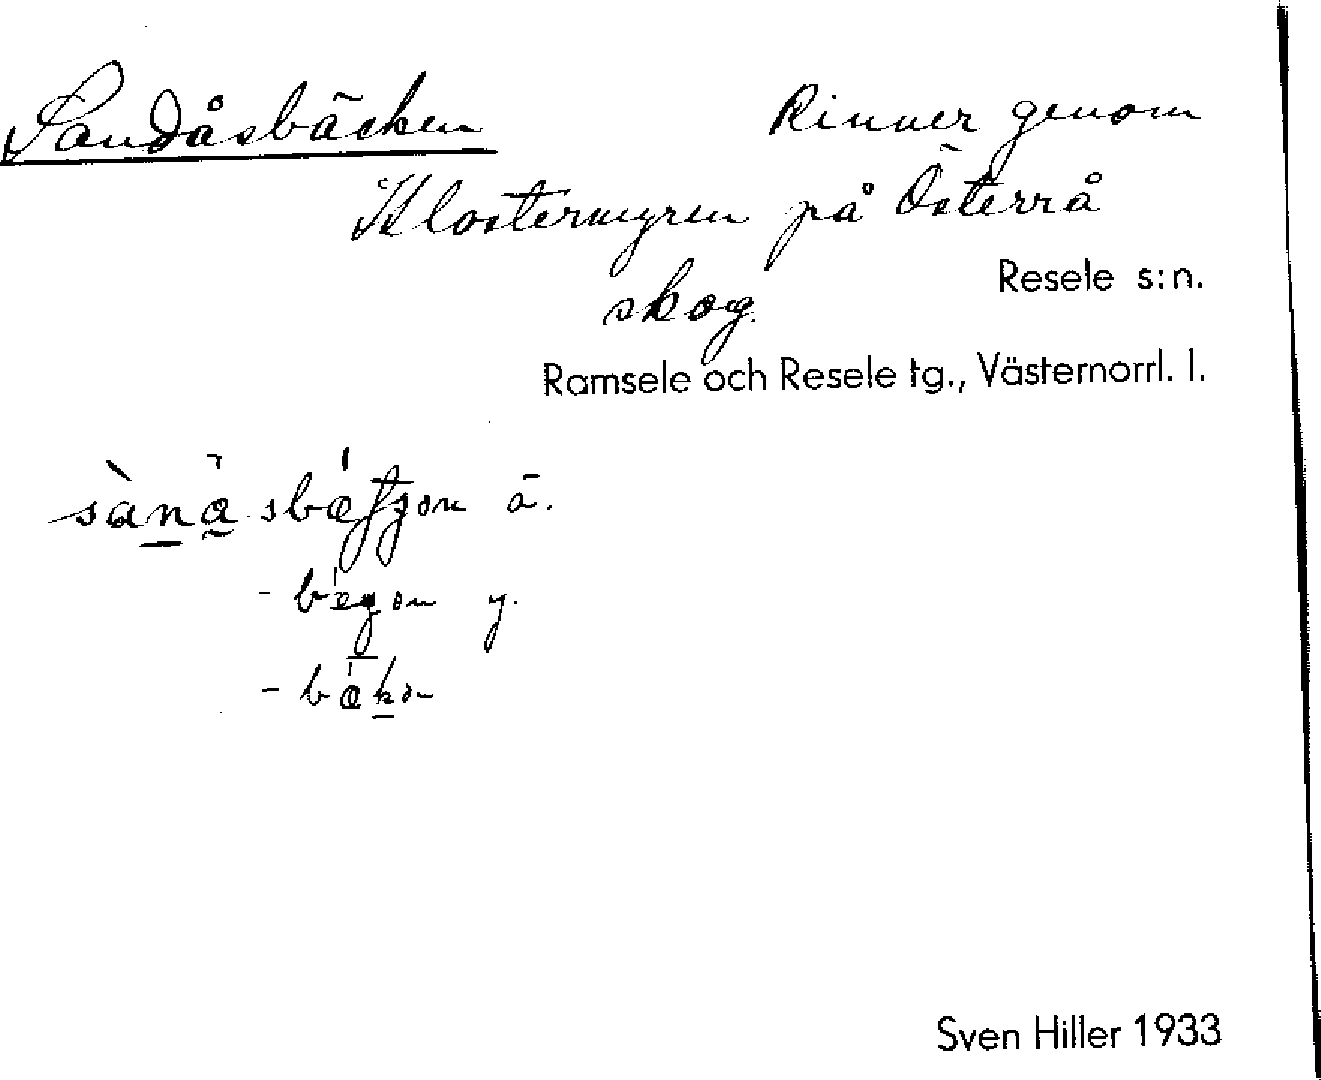 Sandåsbäcken Rinner genom
Klostermyren på Österrå
Resele s:n.
skog.
Ramsele och Resele tg., Västernorrl. l.
ä.
y.
Sven Hiller 1933